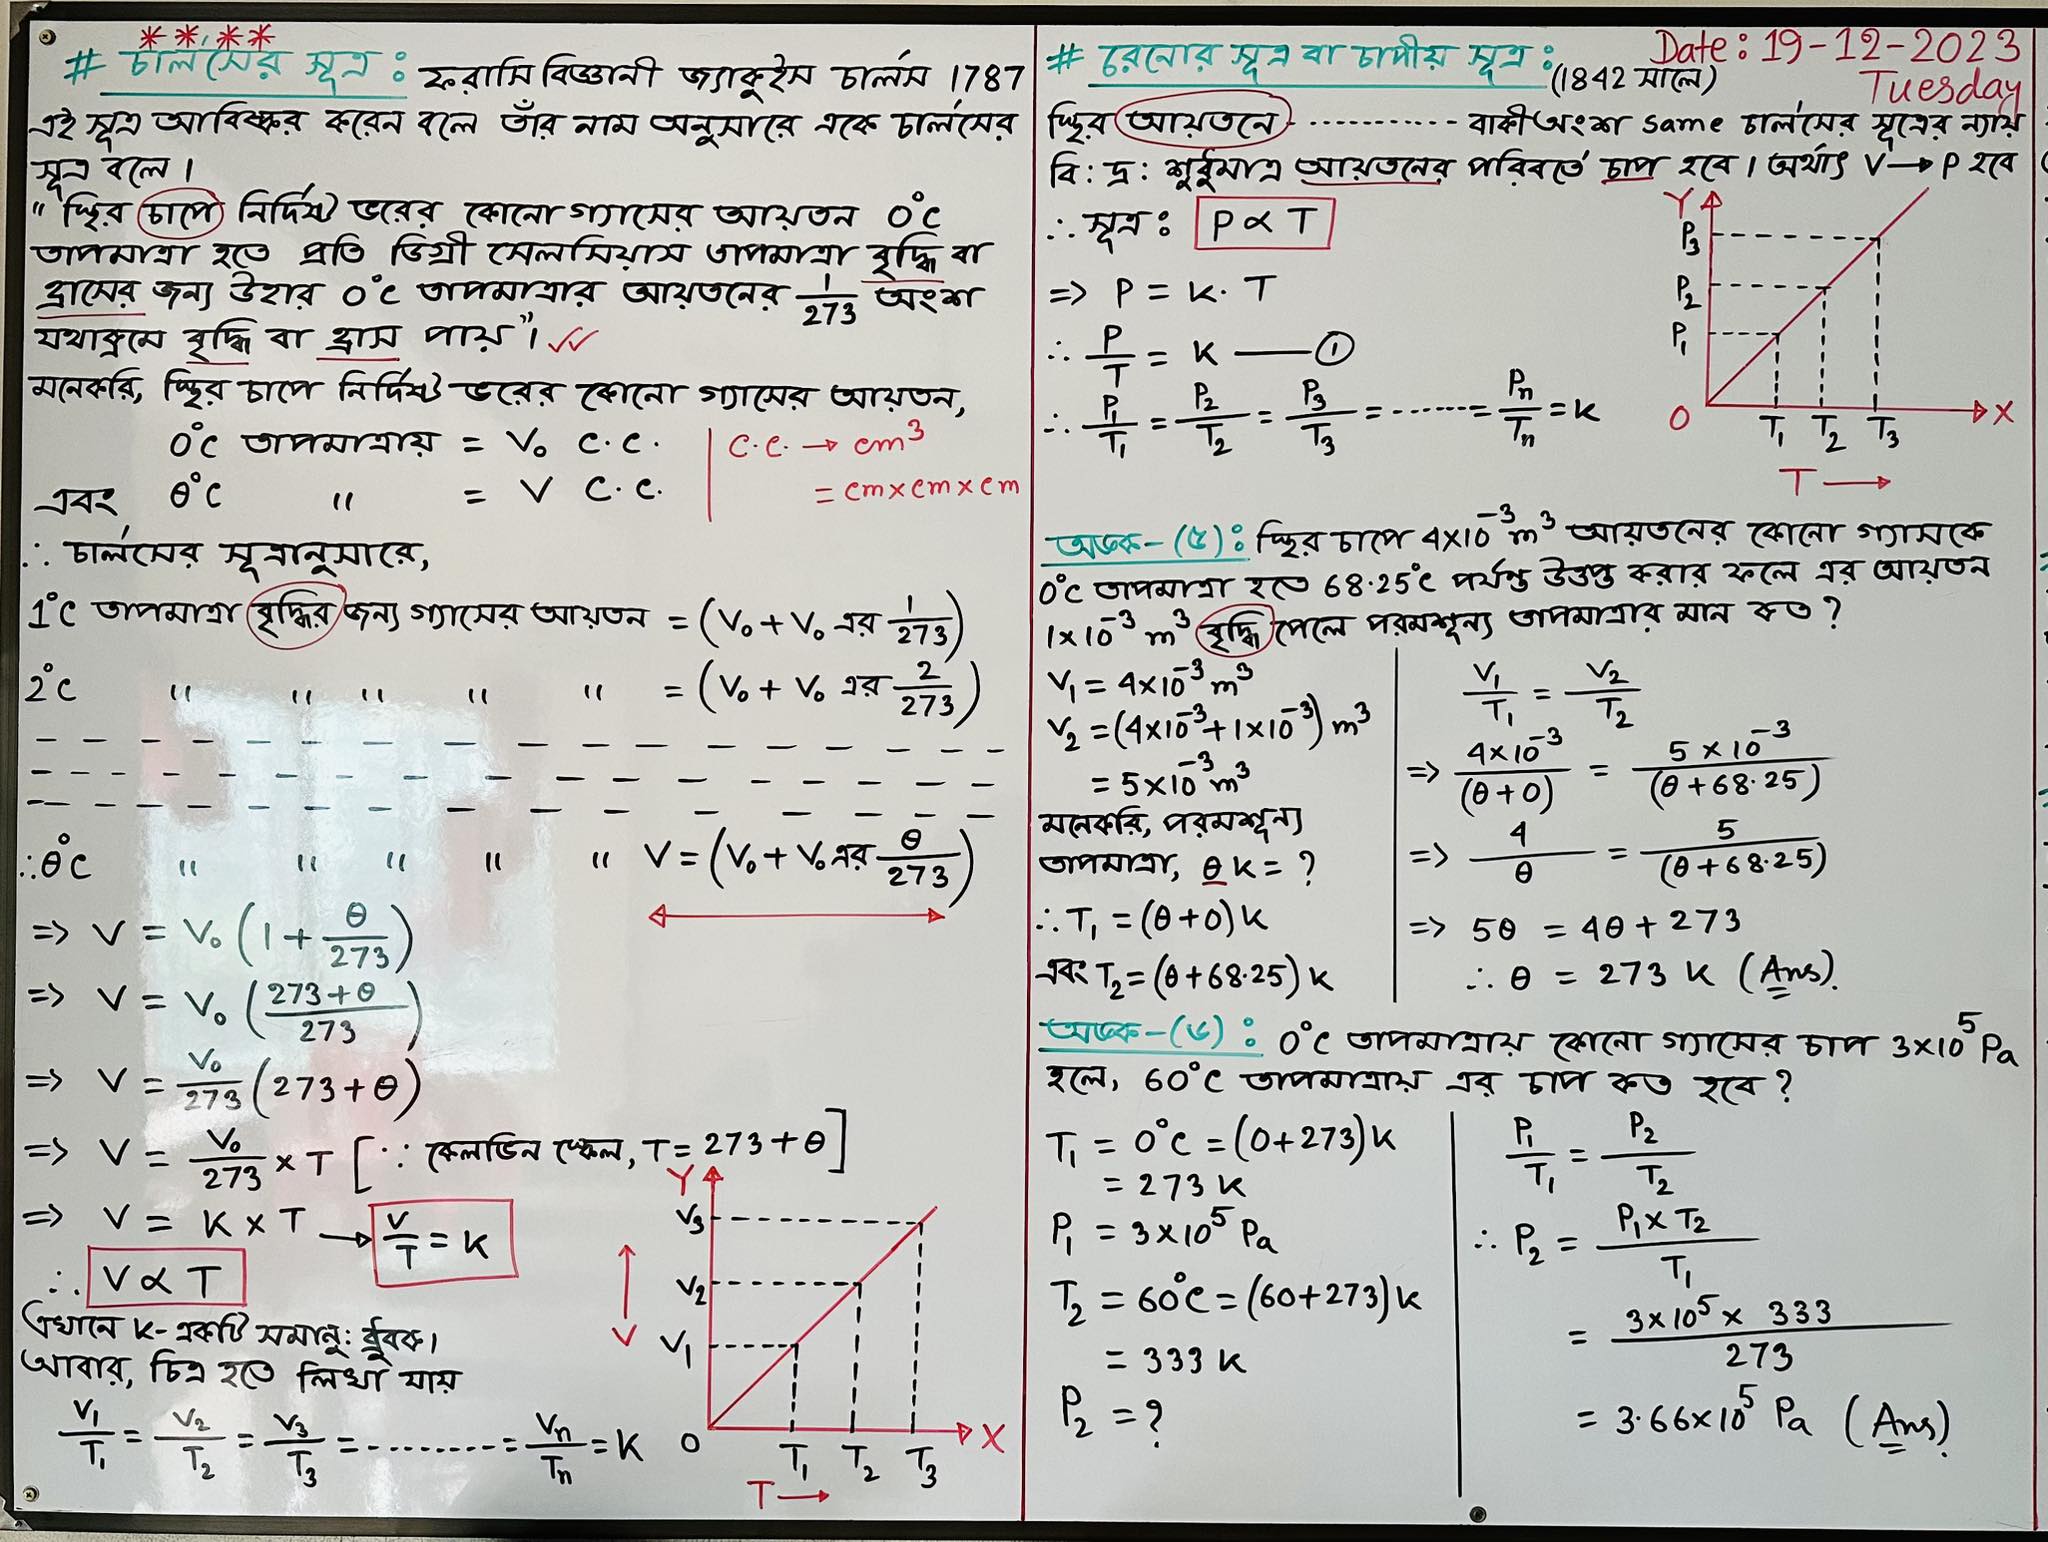 ****
# চার্লসের সূত্র : ফরাসি বিজ্ঞানী জ্যাকুইস চার্লস 1787
এই সূত্র আবিষ্কার করেন বলে তাঁর নাম অনুসারে একে চার্লসের
সূত্র বলে।
" স্থির চাপে নির্দিষ্ট ভরের কোনো গ্যাসের আয়তন 0°C
তাপমাত্রা হতে প্রতি ডিগ্রী সেলসিয়াস তাপমাত্রা বৃদ্ধি বা
হ্রাসের জন্য উহার 0°C তাপমাত্রার আয়তনের 1/273 অংশ
যথাক্রমে বৃদ্ধি বা হ্রাস পায়"। ✓✓
মনেকরি, স্থির চাপে নির্দিষ্ট ভরের কোনো গ্যাসের আয়তন,
0°C তাপমাত্রায় = V₀ C.C. | C.C. → cm³
এবং θ°C " = V C.C. | = cm×cm×cm
∴ চার্লসের সূত্রানুসারে,
1°C তাপমাত্রা বৃদ্ধির জন্য গ্যাসের আয়তন = (V₀ + V₀ এর 1/273)
2°C " " " " " = (V₀ + V₀ এর 2/273)
∴ θ°C " " " " " V = (V₀ + V₀ এর θ/273)
=> V = V₀ (1 + θ/273)
=> V = V₀ ((273+θ)/273)
=> V = V₀/273 (273+θ)
=> V = V₀/273 × T [∵ কেলভিন স্কেল, T = 273+θ]
=> V = K × T → V/T = K
∴ V ∝ T
এখানে K- একটি সমানু: ধ্রুবক।
আবার, চিত্র হতে লিখা যায়
V₁/T₁ = V₂/T₂ = V₃/T₃ = ......... = Vn/Tn = K
Y
V₃
V₂
V
V₁
O T₁ T₂ T₃ X
T →
Date: 19-12-2023
Tuesday
# রেনোর সূত্র বা চাপীয় সূত্র : (1842 সালে)
স্থির আয়তনে ............ বাকী অংশ same চার্লসের সূত্রের ন্যায়
বি: দ্র: শুধুমাত্র আয়তনের পরিবর্তে চাপ হবে। অর্থাৎ V → P হবে
∴ সূত্র : P ∝ T
=> P = K. T
∴ P/T = K —— ①
∴ P₁/T₁ = P₂/T₂ = P₃/T₃ = ....... = Pn/Tn = K
Y
P₃
P₂
P₁
O T₁ T₂ T₃ X
T →
অঙ্ক-(৫) : স্থির চাপে 4×10⁻³ m³ আয়তনের কোনো গ্যাসকে
0°C তাপমাত্রা হতে 68.25°C পর্যন্ত উত্তপ্ত করার ফলে এর আয়তন
1×10⁻³ m³ বৃদ্ধি পেলে পরমশূন্য তাপমাত্রার মান কত ?
V₁ = 4×10⁻³ m³
V₂ = (4×10⁻³ + 1×10⁻³) m³
= 5×10⁻³ m³
মনেকরি, পরমশূন্য
তাপমাত্রা, θ K = ?
∴ T₁ = (θ+0) K
এবং T₂ = (θ+68.25) K
V₁/T₁ = V₂/T₂
=> 4×10⁻³/(θ+0) = 5×10⁻³/(θ+68.25)
=> 4/θ = 5/(θ+68.25)
=> 5θ = 4θ + 273
∴ θ = 273 K (Ans).
অঙ্ক-(৬) : 0°C তাপমাত্রায় কোনো গ্যাসের চাপ 3×10⁵ Pa
হলে, 60°C তাপমাত্রায় এর চাপ কত হবে ?
T₁ = 0°C = (0+273) K
= 273 K
P₁ = 3×10⁵ Pa
T₂ = 60°C = (60+273) K
= 333 K
P₂ = ?
P₁/T₁ = P₂/T₂
∴ P₂ = P₁×T₂/T₁
= 3×10⁵ × 333/273
= 3.66×10⁵ Pa (Ans).